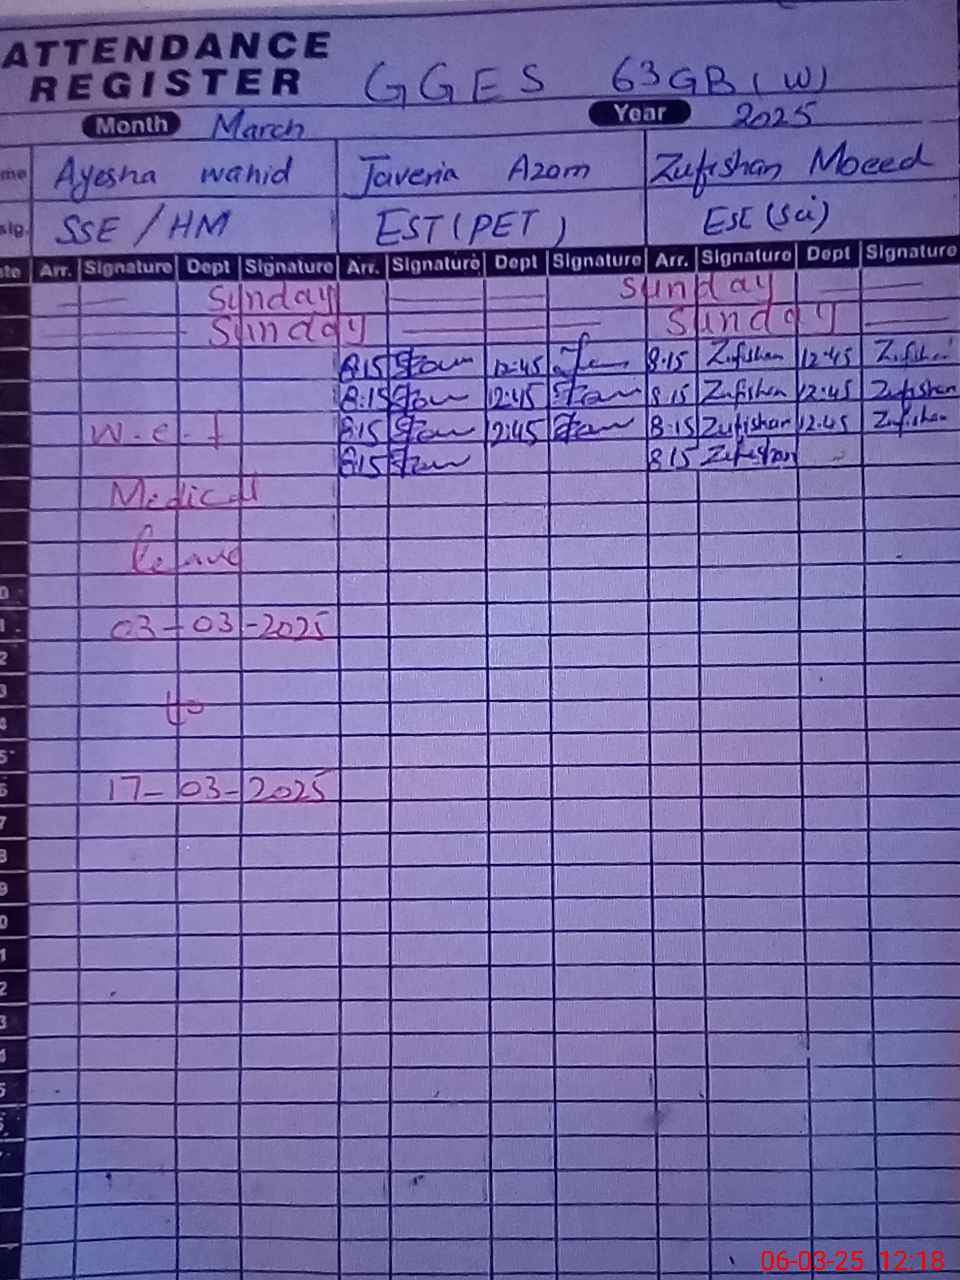 ATTENDANCE
REGISTER GGES 63GB(W)
Month March Year 2025
me Ayesha wahid Javeria Azam Zufishan Moeed
sig. SSE/HM EST(PET) ESE(Sci)
te Arr. Signature Dept Signature Arr. Signature Dept Signature Arr. Signature Dept Signature
Sunday Sunday
Sunday Sunday
8:15 12:45 8:15 Zufishan 12:45 Zufishan
8:15 12:45 8:15 Zufishan 12:45 Zufishan
w.e.f 8:15 12:45 8:15 Zufishan 12:45 Zufishan
8:15 8:15 Zufishan
Medical
Leave
0
1 03-03-2025
2
3
to
4
5
6 17-03-2025
7
8
9
0
1
2
3
4
5
06-03-25 12:18